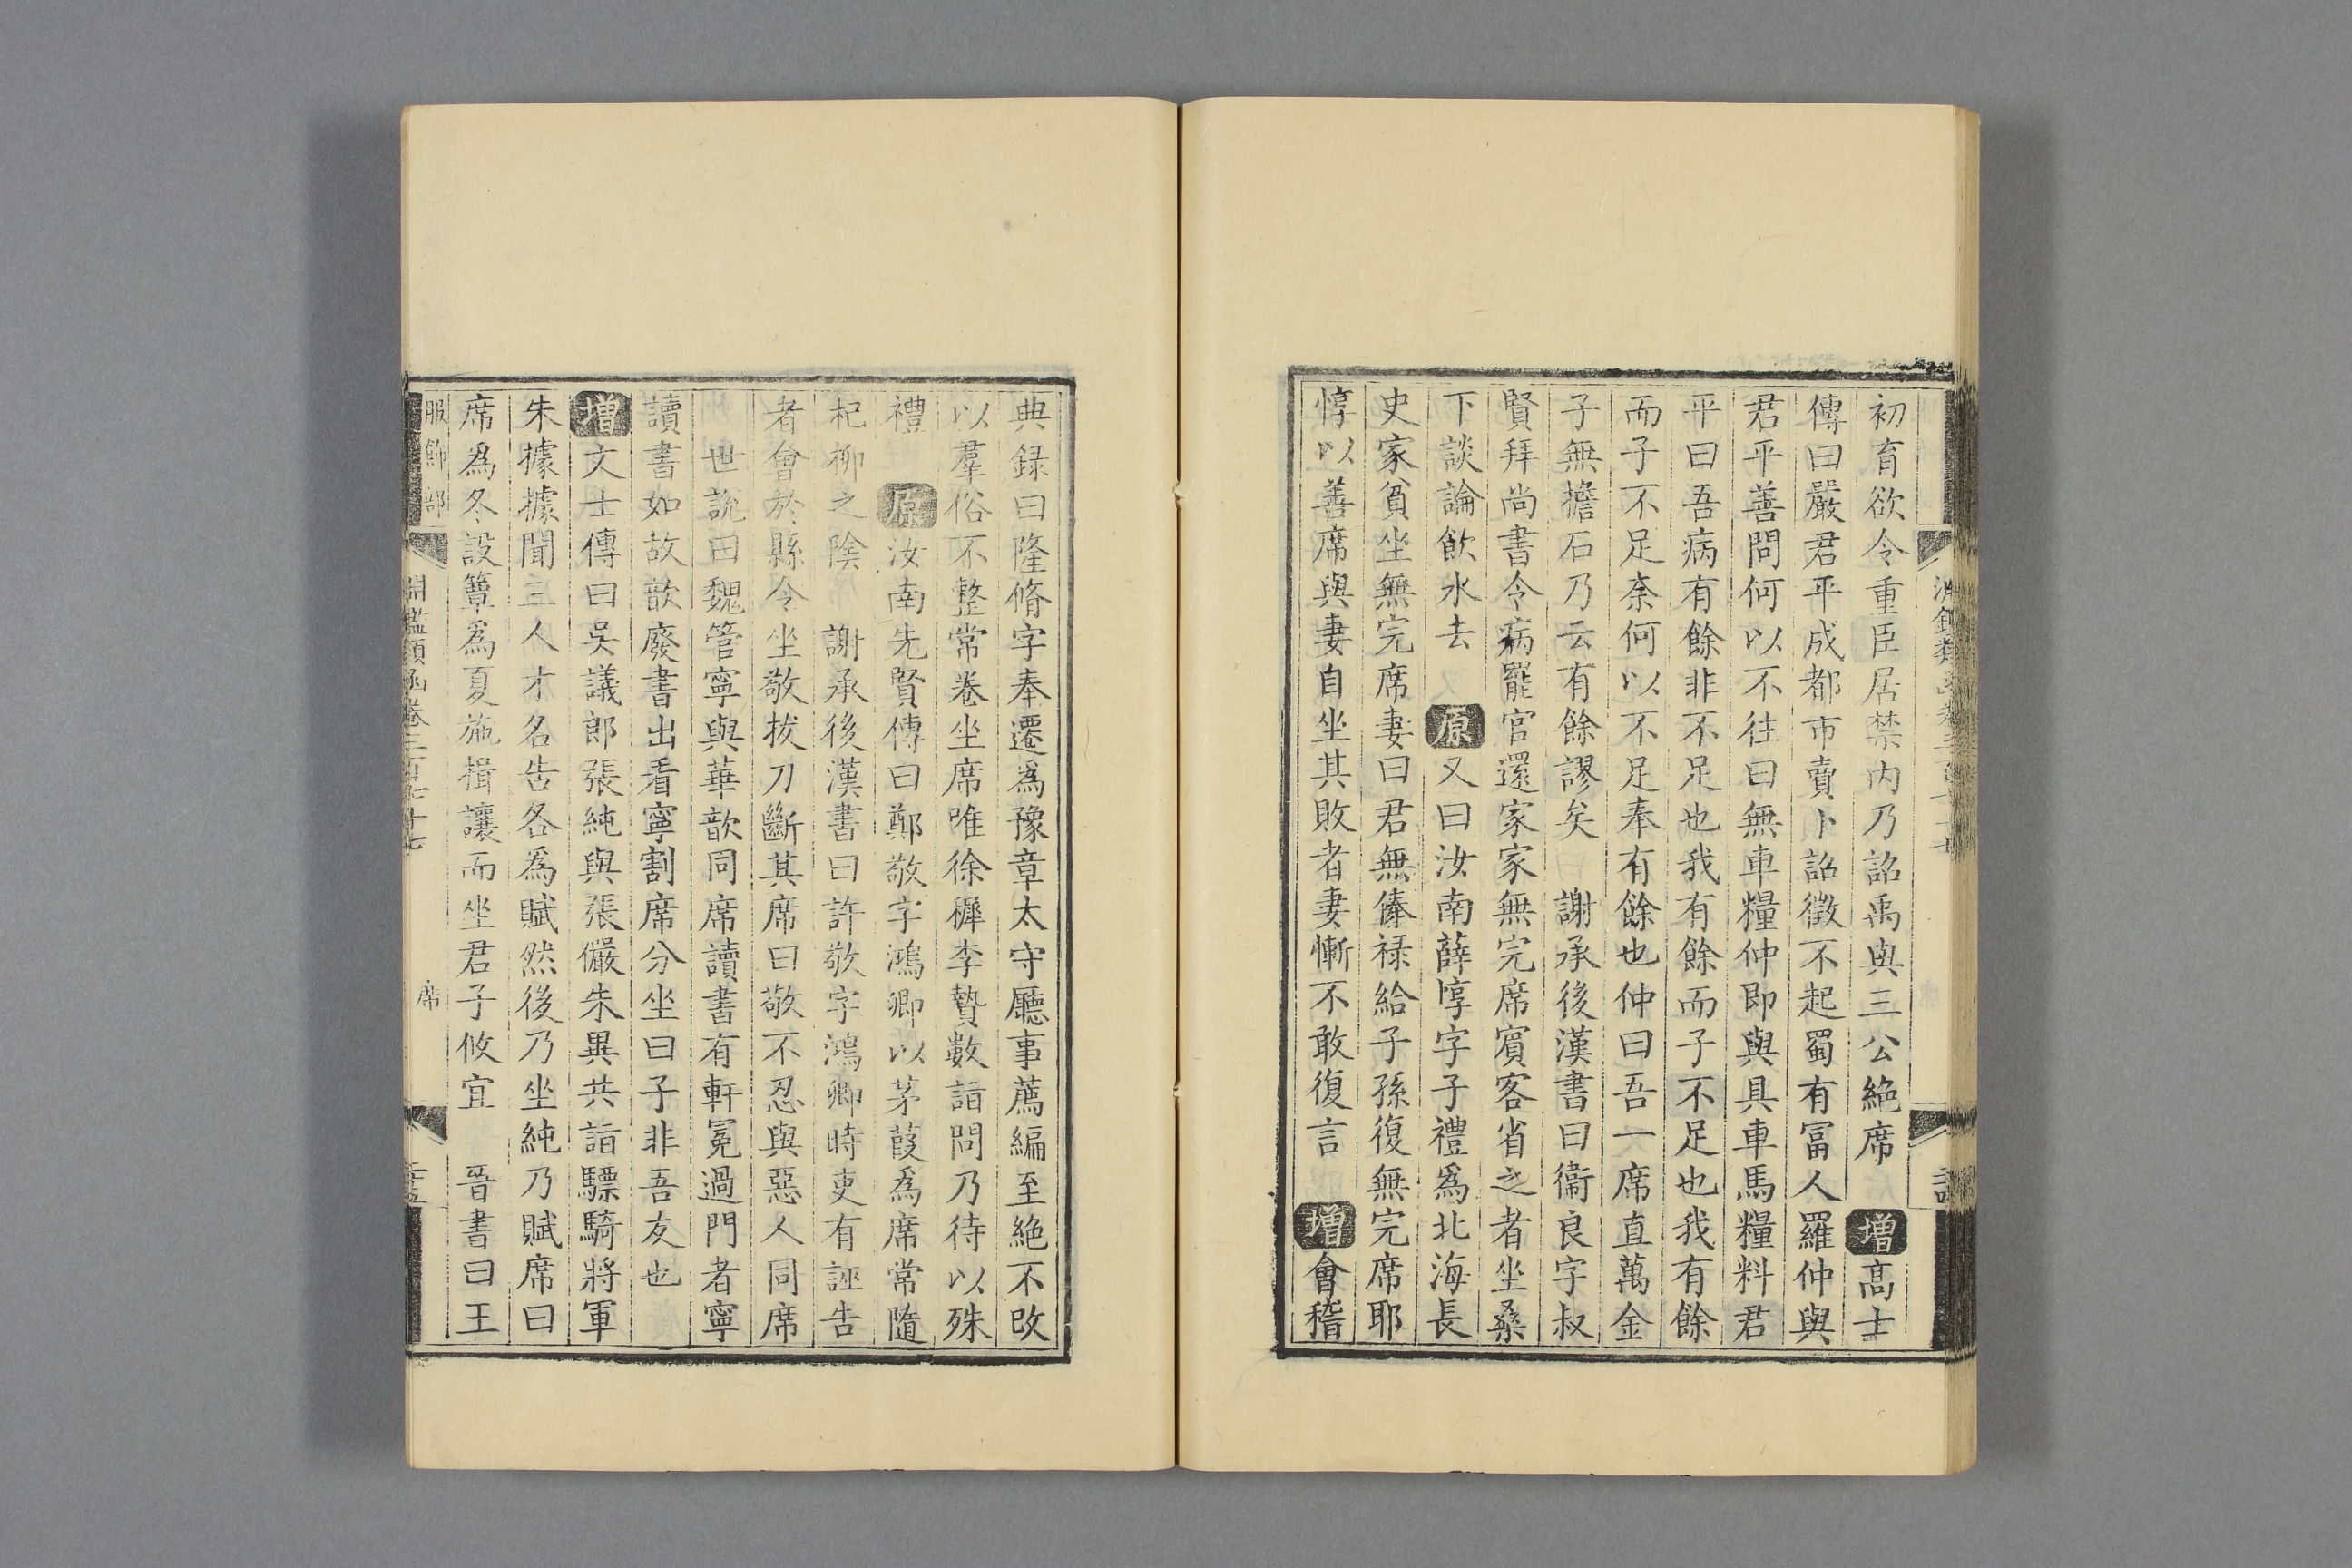 初育欲令重臣居禁内乃詔禹與三公絶席　增高士
傳曰嚴君平成都市賣卜詔徵不起蜀有冨人羅仲與
君平善問何以不往曰無車糧仲即與具車馬糧料君
平曰吾病有餘非不足也我有餘而子不足也我有餘
而子不足奈何以不足奉有餘也仲曰吾一席直萬金
子無擔石乃云有餘謬矣　謝承後漢書曰衞良字叔
賢拜尚書令病罷官還家家無完席賓客省之者坐桑
下談論飲水去　原又曰汝南薛惇字子禮爲北海長
史家貧坐無完席妻曰君無俸禄給子孫復無完席耶
惇以善席與妻自坐其敗者妻慚不敢復言　增會稽
典録曰隆脩字奉遷爲豫章太守廳事薦編至絶不改
以羣俗不整常卷坐席唯徐穉李贄數詣問乃待以殊
禮　原汝南先賢傳曰鄭敬字鴻卿以茅葭爲席常隨
杞柳之陰　謝承後漢書曰許敬字鴻卿時吏有誣告
者會於縣令坐敬拔刀斷其席曰敬不忍與惡人同席
　世說曰魏管寧與華歆同席讀書有軒冕過門者寧
讀書如故歆廢書出看寧割席分坐曰子非吾友也
增文士傳曰吳議郎張純與張儼朱異共詣驃騎將軍
朱據據聞三人才名告各爲賦然後乃坐純乃賦席曰
席爲冬設簟爲夏施揖讓而坐君子攸宜　晉書曰王
服飾部　淵鑑類函卷三百七十七　席